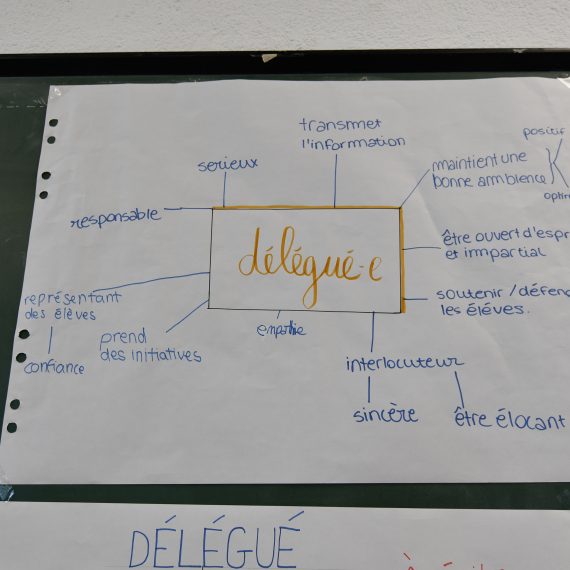 transmet
l'information
positif
serieux
maintient une
bonne ambience
responsable
délégué·e
être ouvert d'espr
et impartial
représentant
des élèves
soutenir / défend
les élèves.
prend
des initiatives
empathie
interlocuteur
confiance
sincère
être élocant
DÉLÉGUÉ